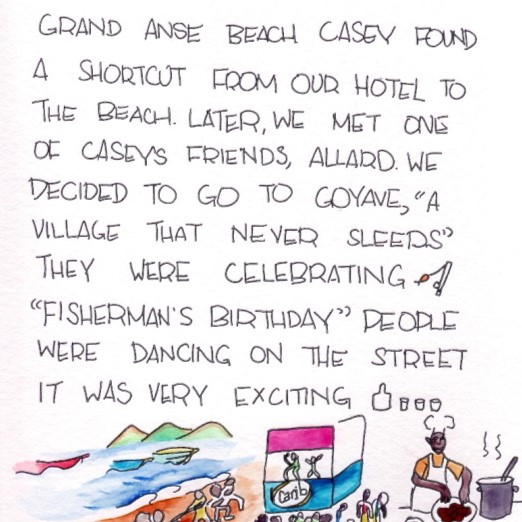 GRAND ANSE BEACH CASEY FOUND
A SHORTCUT FROM OUR HOTEL TO
THE BEACH. LATER, WE MET ONE
OF CASEY'S FRIENDS, ALLARD. WE
DECIDED TO GO TO GOYAVE, "A
VILLAGE THAT NEVER SLEEPS"
THEY WERE CELEBRATING
"FISHERMAN'S BIRTHDAY" PEOPLE
WERE DANCING ON THE STREET
IT WAS VERY EXCITING
Carib